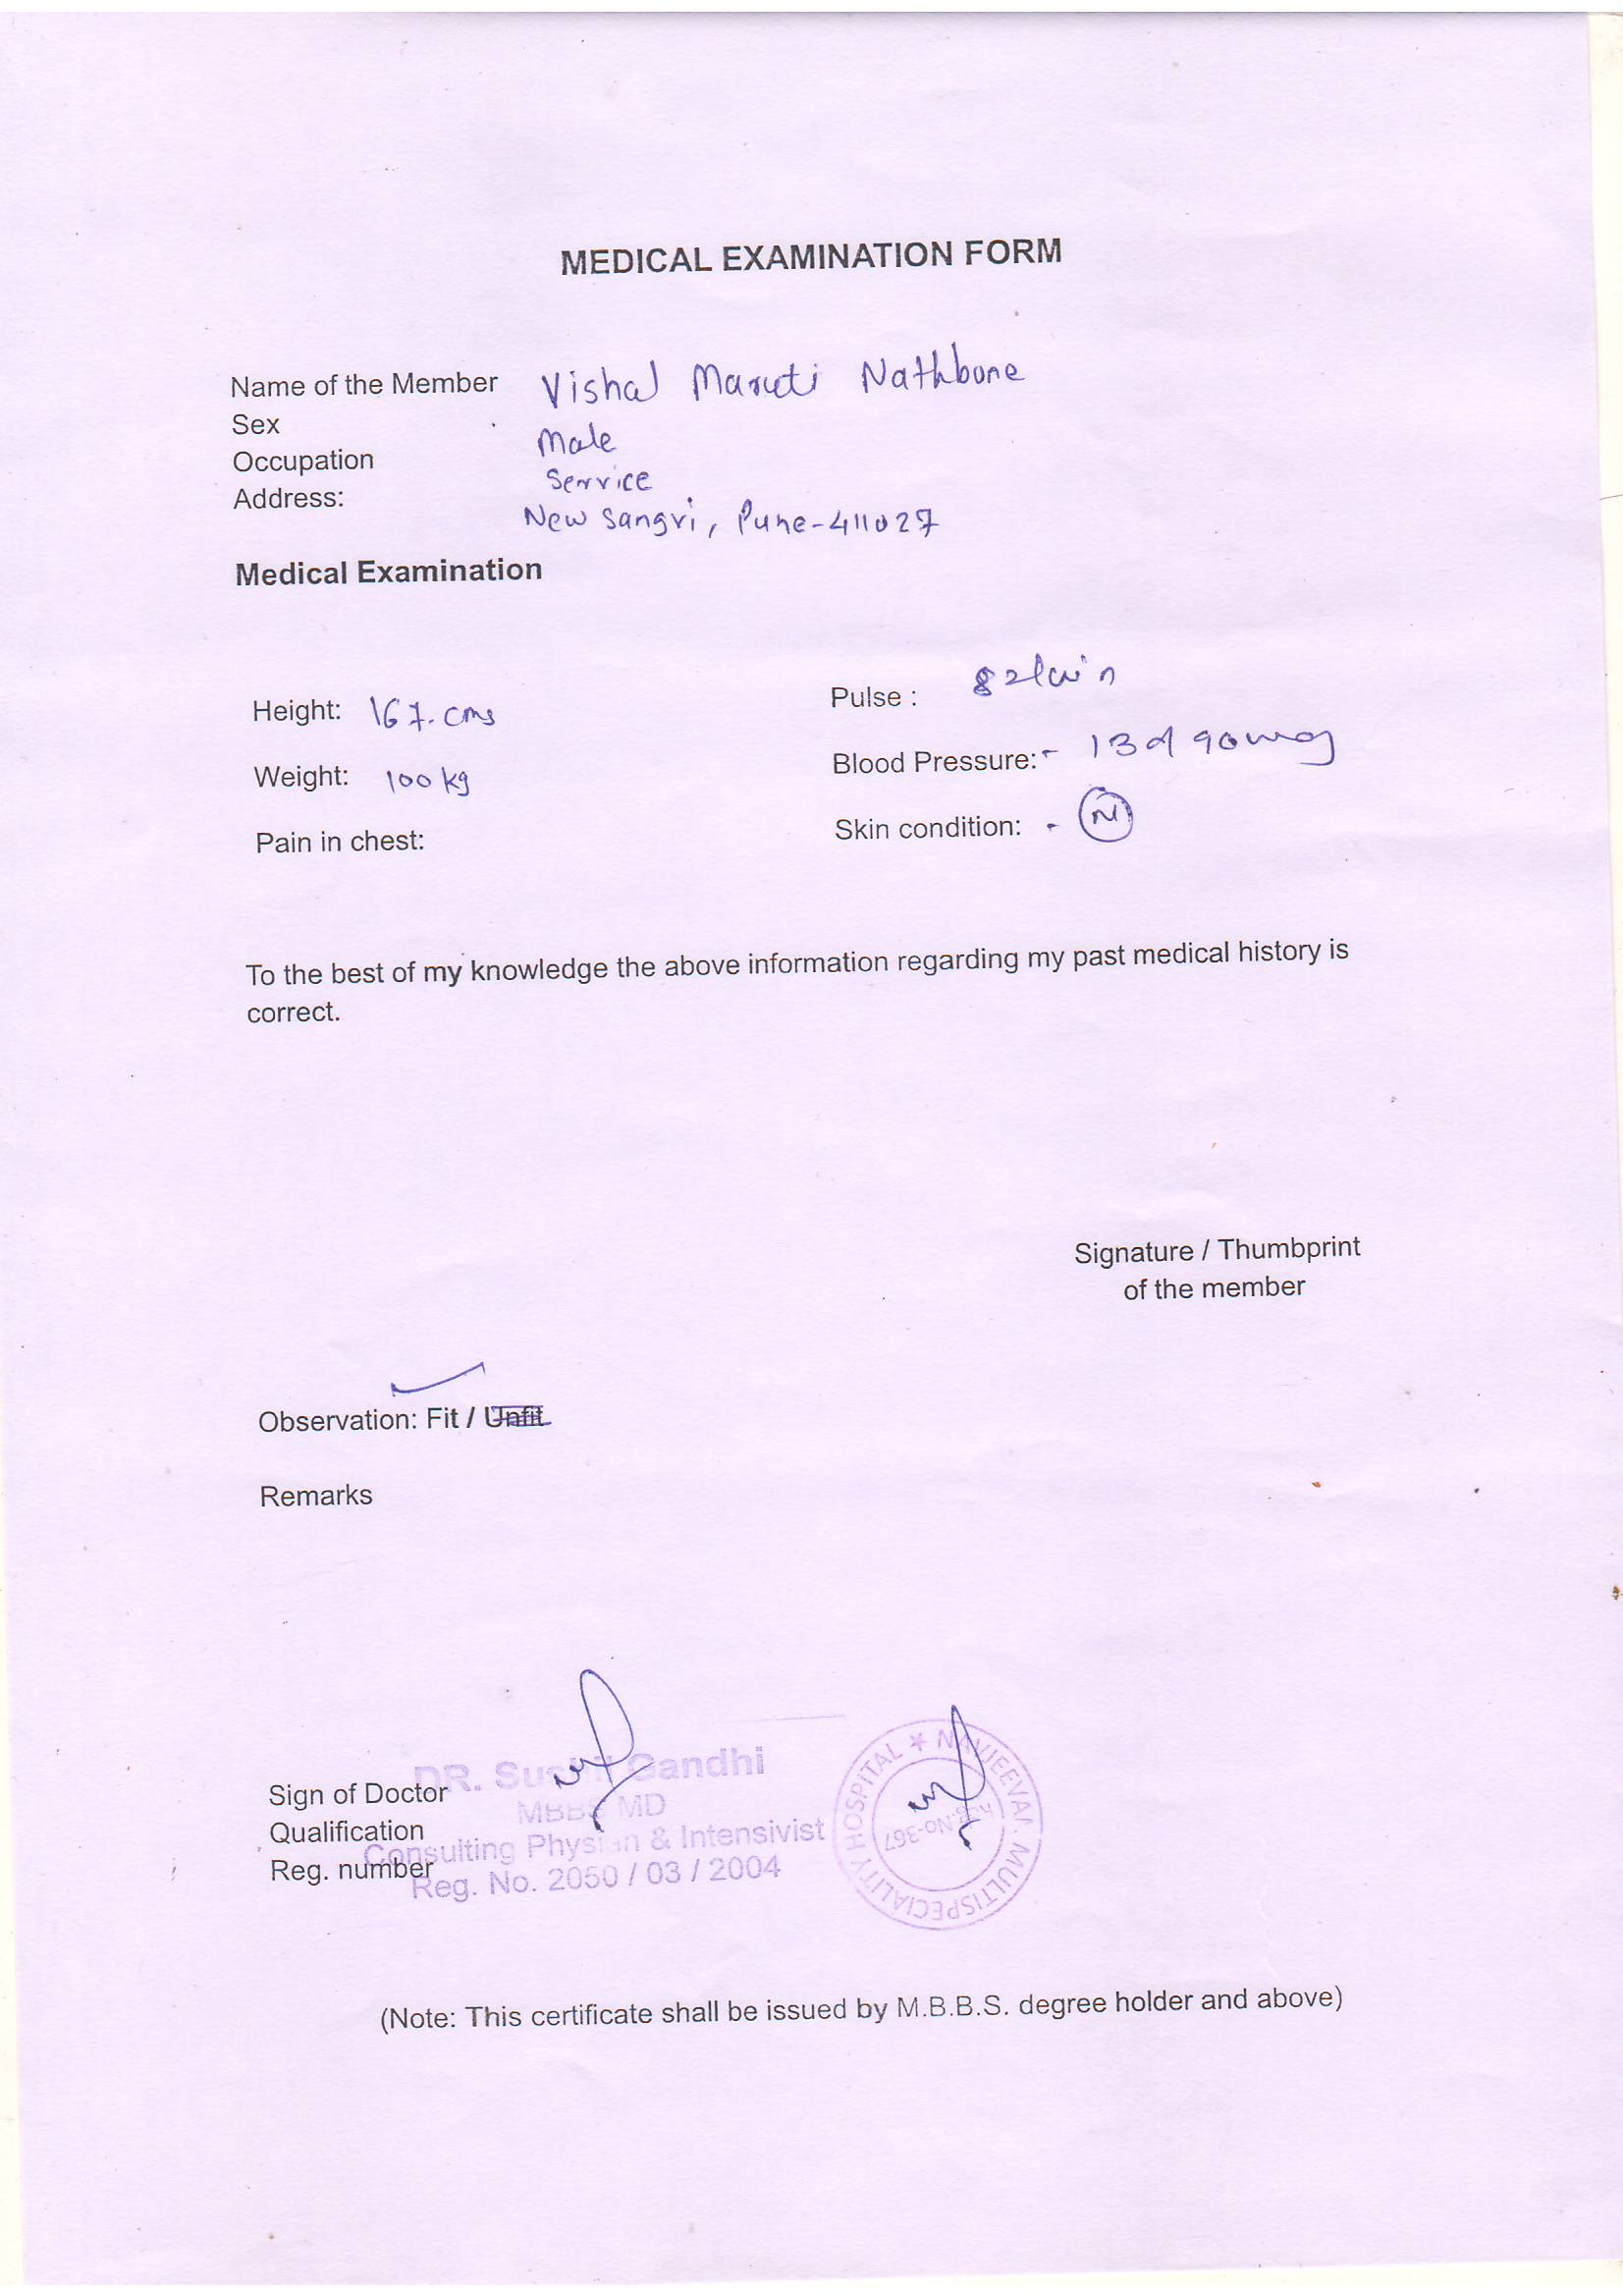 MEDICAL EXAMINATION FORM
Name of the Member Vishal Maruti Nathbone
Sex Male
Occupation Service
Address: New Sangvi, Pune-411027
Medical Examination
Height: 167. cms
Pulse : 82/min
Weight: 100 kg
Blood Pressure:-
Pain in chest:
Skin condition: - N
To the best of my knowledge the above information regarding my past medical history is
correct.
Signature / Thumbprint
of the member
Observation: Fit / Unfit
Remarks
DR. Gandhi
Sign of Doctor
MBBS MD
Qualification
Consulting & Intensivist
Reg. number
Reg. No. 2050 / 03 / 2004
NAVJEEVAN MULTISPECIALITY HOSPITAL
Reg.No-367
(Note: This certificate shall be issued by M.B.B.S. degree holder and above)